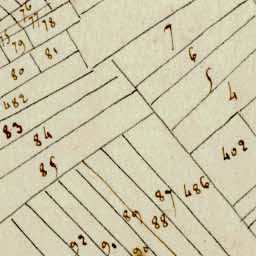 76
77
78
75
79
81
80
482
83
84
85
7
6
5
4
402
486
87
88
89
90
92